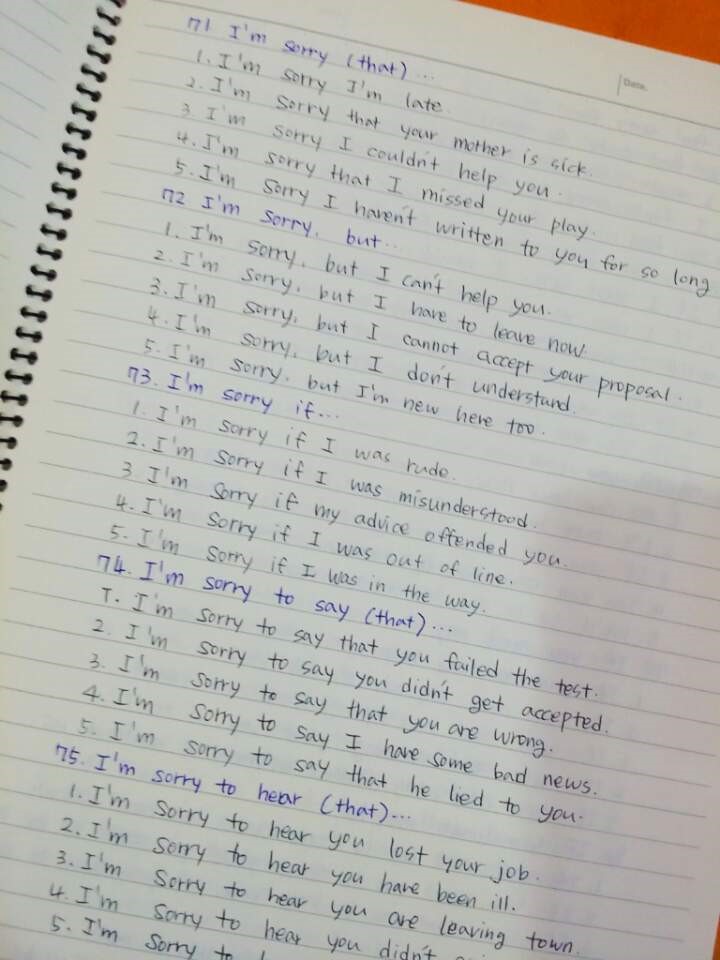 Date.
71 I'm sorry (that)...
1. I'm sorry I'm late.
2. I'm sorry that your mother is sick.
3 I'm sorry I couldn't help you.
4. I'm sorry that I missed your play.
5. I'm sorry I haven't written to you for so long
72 I'm sorry, but...
1. I'm sorry, but I can't help you.
2. I'm sorry, but I have to leave now.
3. I'm sorry, but I cannot accept your proposal.
4. I'm sorry, but I don't understand.
5. I'm sorry, but I'm new here too.
73. I'm sorry if...
1. I'm sorry if I was rude.
2. I'm sorry if I was misunderstood.
3 I'm sorry if my advice offended you.
4. I'm sorry if I was out of line.
5. I'm sorry if I was in the way.
74. I'm sorry to say (that)...
1. I'm sorry to say that you failed the test.
2. I'm sorry to say you didn't get accepted.
3. I'm sorry to say that you are wrong.
4. I'm sorry to say I have some bad news.
5. I'm sorry to say that he lied to you.
75. I'm sorry to hear (that)...
1. I'm sorry to hear you lost your job.
2. I'm sorry to hear you have been ill.
3. I'm sorry to hear you are leaving town.
4. I'm sorry to hear you didn't
5. I'm sorry to